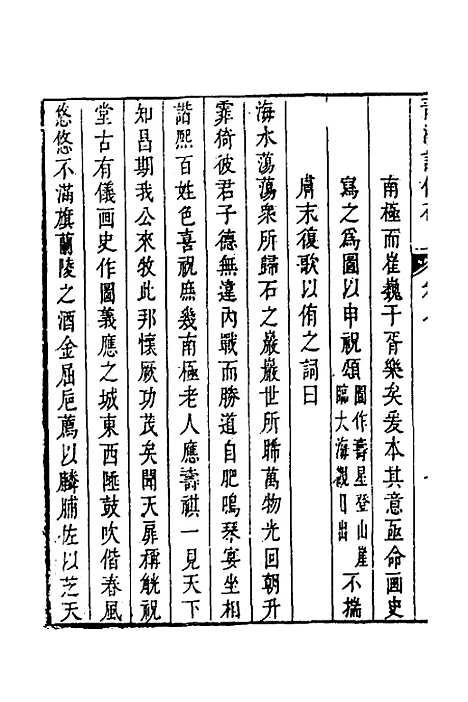 南極而崔巍干胥樂矣爰本其意亟命画史
寫之為圖以申祝頌圖作壽星登山崖臨大海觀日出不揣
庸末復歌以侑之詞曰
海水蕩蕩衆所歸石之巖巖世所睎萬物光回朝升
霏猗彼君子德無違內戰而勝道自肥鳴琴宴坐相
諧熙百姓色喜祝庶幾南極老人應壽祺一見天下
知昌期我公來牧此邦懷厥功茂矣聞天扉稱觥祝
堂古有儀画史作圖義應之城東西陲鼓吹偕春風
悠悠不滿旗蘭陵之酒金屈卮薦以麟脯佐以芝天